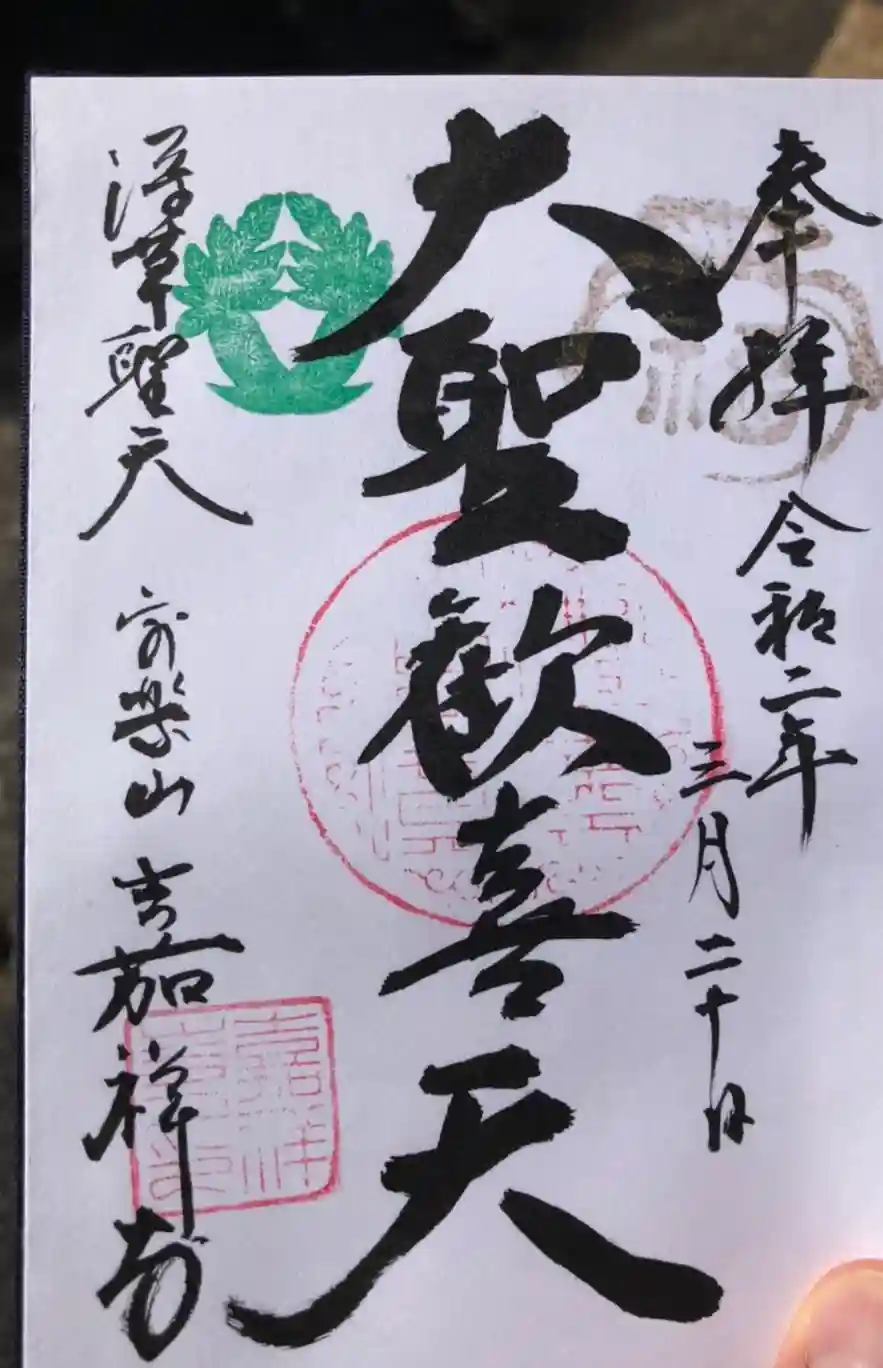 奉拝
令和二年
三月二十日
大聖歓喜天
深草聖天
楽山
嘉祥寺